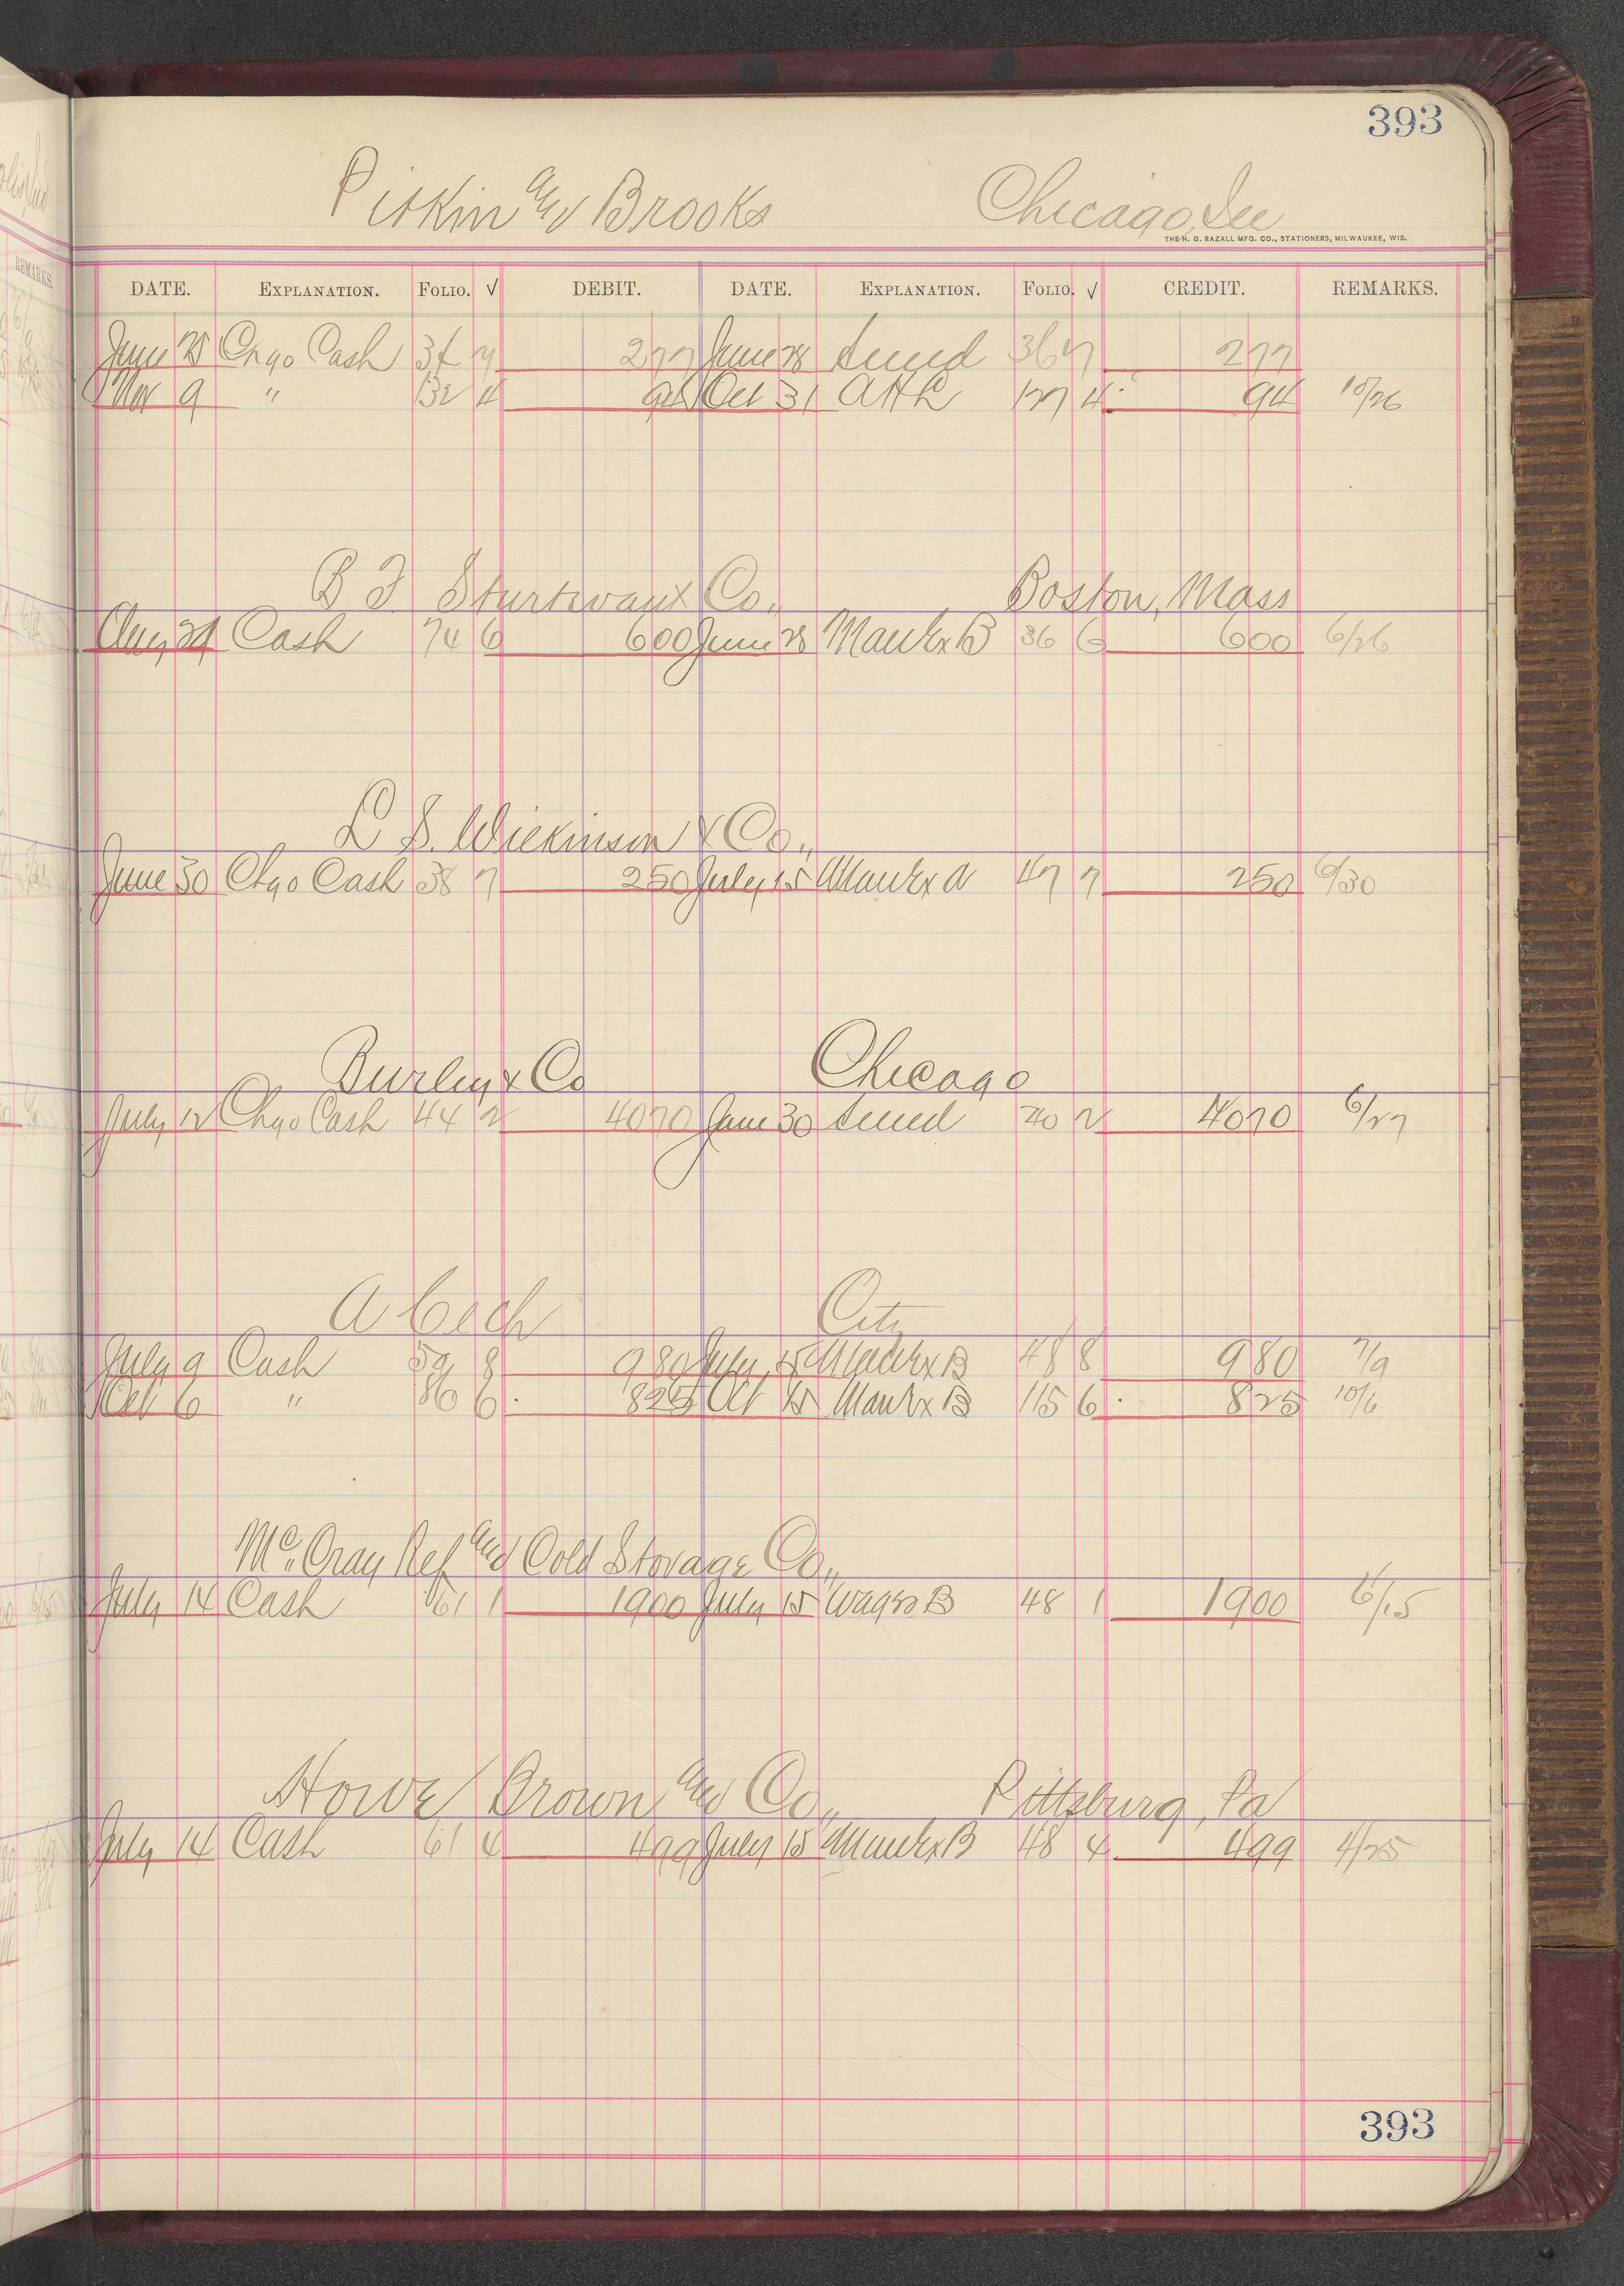 393
Pitkin and Brooks Chicago, Ill
THE H. G. RAZALL MFG. CO., STATIONERS, MILWAUKEE, WIS.
DATE. EXPLANATION. FOLIO. √ DEBIT. DATE. EXPLANATION. FOLIO. √ CREDIT. REMARKS.
June 25 Chgo Cash 34 7 277 June 28 36 7 277
Nov 9 " 132 4 94 Oct 31 127 4 94 10/26
B F Sturtevant Co., Boston, Mass
Aug 24 Cash 74 6 600 June 28 Man Ex B 36 6 600 6/26
L S. Wilkinson & Co.,
June 30 Chgo Cash 38 7 250 July 15 Man Ex A 47 7 250 6/30
Burley & Co Chicago
July 12 Chgo Cash 44 2 4070 June 30 40 2 4070 6/27
A Cech City
July 9 Cash 59 8 980 July 15 Man Ex B 48 8 980 7/9
Oct 6 " 86 6 825 Oct 15 Man Ex B 115 6 825 10/6
Mc. Cray Ref and Cold Storage Co.,
July 14 Cash 61 1 1900 July 15 Wagon B 48 1 1900 6/15
Howe Brown and Co., Pittsburg, Pa
July 14 Cash 61 4 499 July 15 Man Ex B 48 4 499 4/25
393